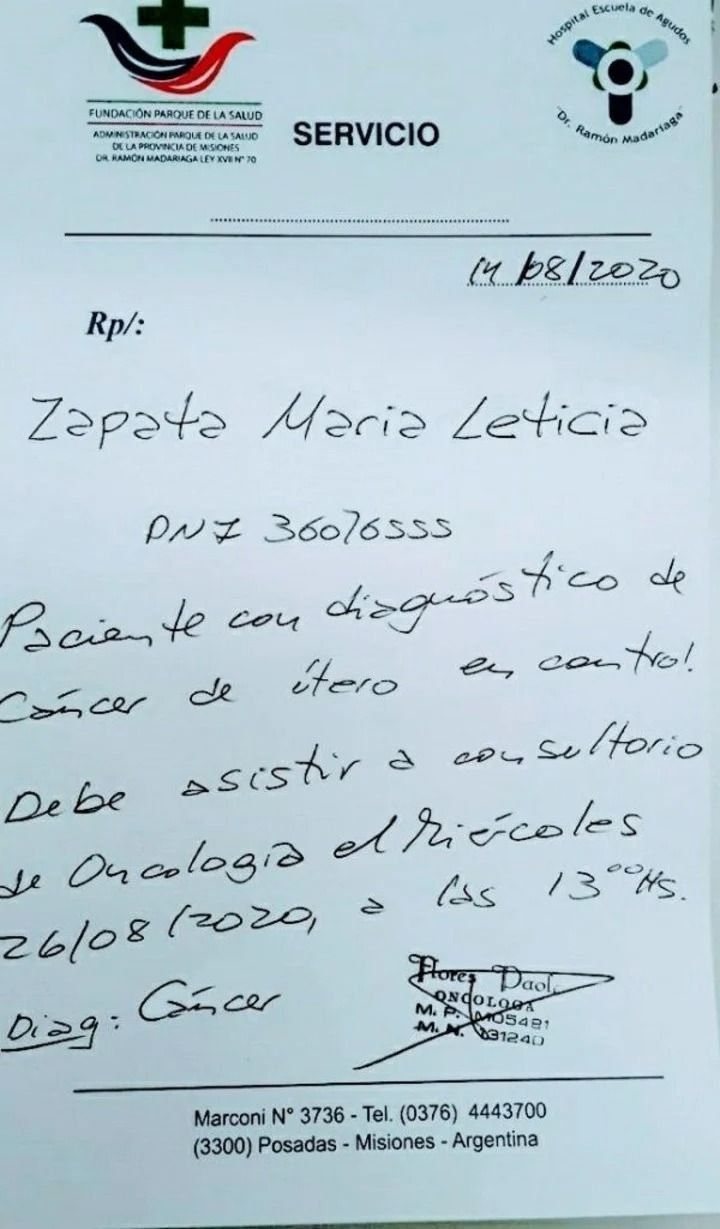 FUNDACIÓN PARQUE DE LA SALUD
ADMINISTRACIÓN PARQUE DE LA SALUD
DE LA PROVINCIA DE MISIONES
DR. RAMÓN MADARIAGA LEY XVII N° 70
SERVICIO
Hospital Escuela de Agudos
"Dr. Ramón Madariaga"
14/08/2020
Rp/:
Zapata Maria Leticia
DNI 36076555
Paciente con diagnóstico de
Cáncer de útero en control.
Debe asistir a consultorio
de Oncología el Miércoles
26/08/2020, a las 13⁰⁰ Hs.
Diag: Cáncer
Flores
ONCOLOGA
M. P. M05491
M. N. 131240
Marconi N° 3736 - Tel. (0376) 4443700
(3300) Posadas - Misiones - Argentina